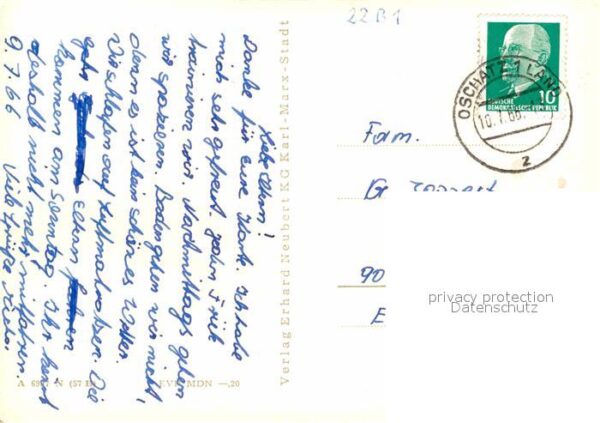 22 B 1
Liebe Oma!
Danke für Eure Karte. Ich habe
mich sehr gefreut. Jeden Früh
trainieren wir. Nachmittags gehen
wir spazieren. Baden gehen wir nicht,
denn es ist kein schönes Wetter.
Wir schlafen auf Luftmatratzen. Die
Eltern
kommen am Sonntag. Ihr könnt
deshalb nicht mehr mitfahren.
9.7.66 Viele Grüße
Verlag Erhard Neubert KG Karl-Marx-Stadt
A 69 N (57 B) KVP MDN —,20
OSCHATZ 1 LAND
10.7.66
z
10
DEUTSCHE
DEMOKRATISCHE REPUBLIK
Fam.
G
90
E
privacy protection
Datenschutz